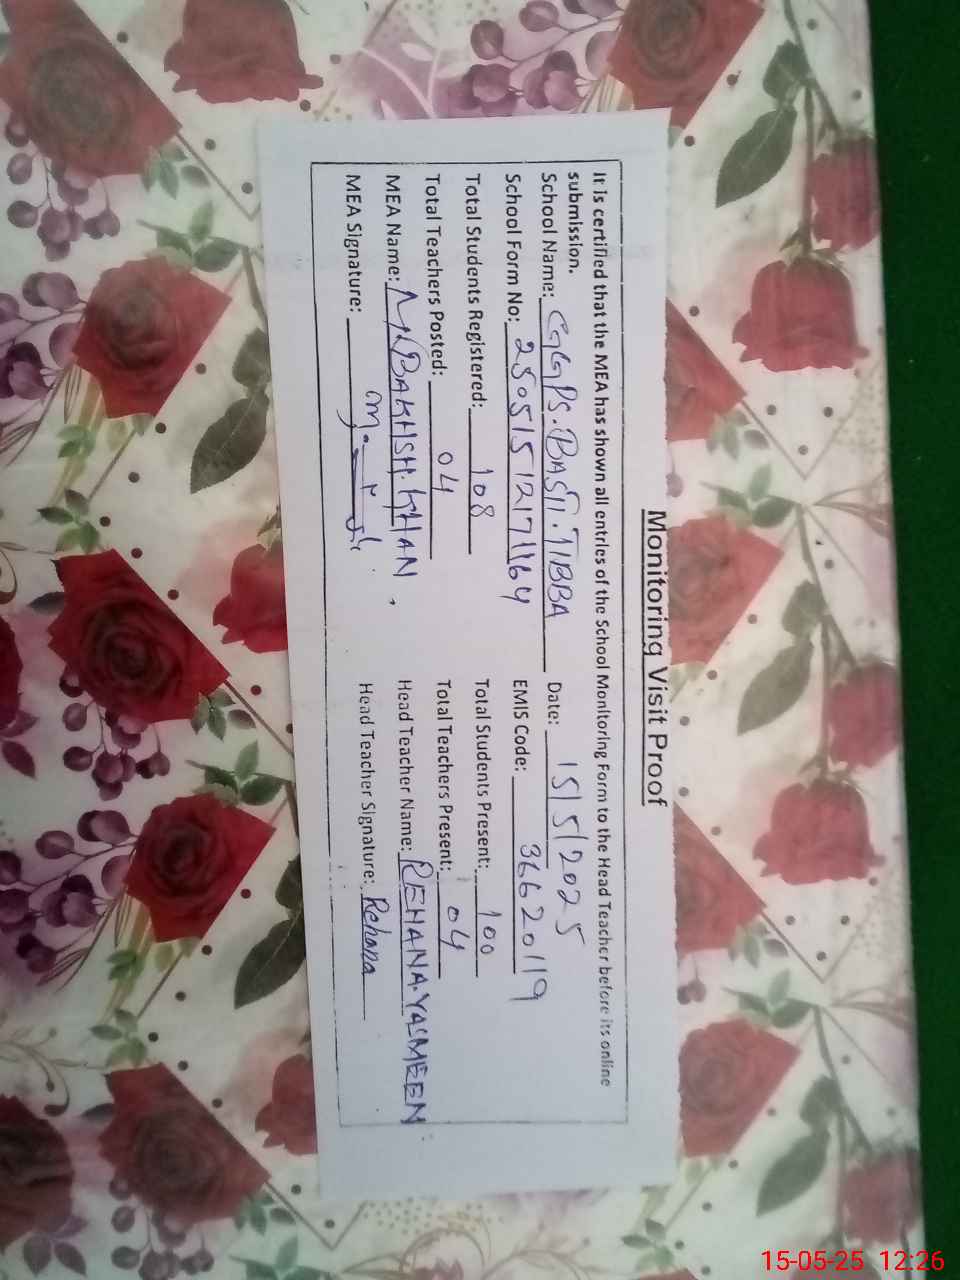 Monitoring Visit Proof
It is certified that the MEA has shown all entries of the School Monitoring Form to the Head Teacher before its online
submission.
School Name: GGPS.BASTI.TIBBA Date: 15/5/2025
School Form No: 25051512171164 EMIS Code: 36620119
Total Students Registered: 108 Total Students Present: 100
Total Teachers Posted: 04 Total Teachers Present: 04
MEA Name: M.BAKHSH.KHAN. Head Teacher Name: REHANA.YASMEEN
MEA Signature: Head Teacher Signature: Rehana
15-05-25 12:26